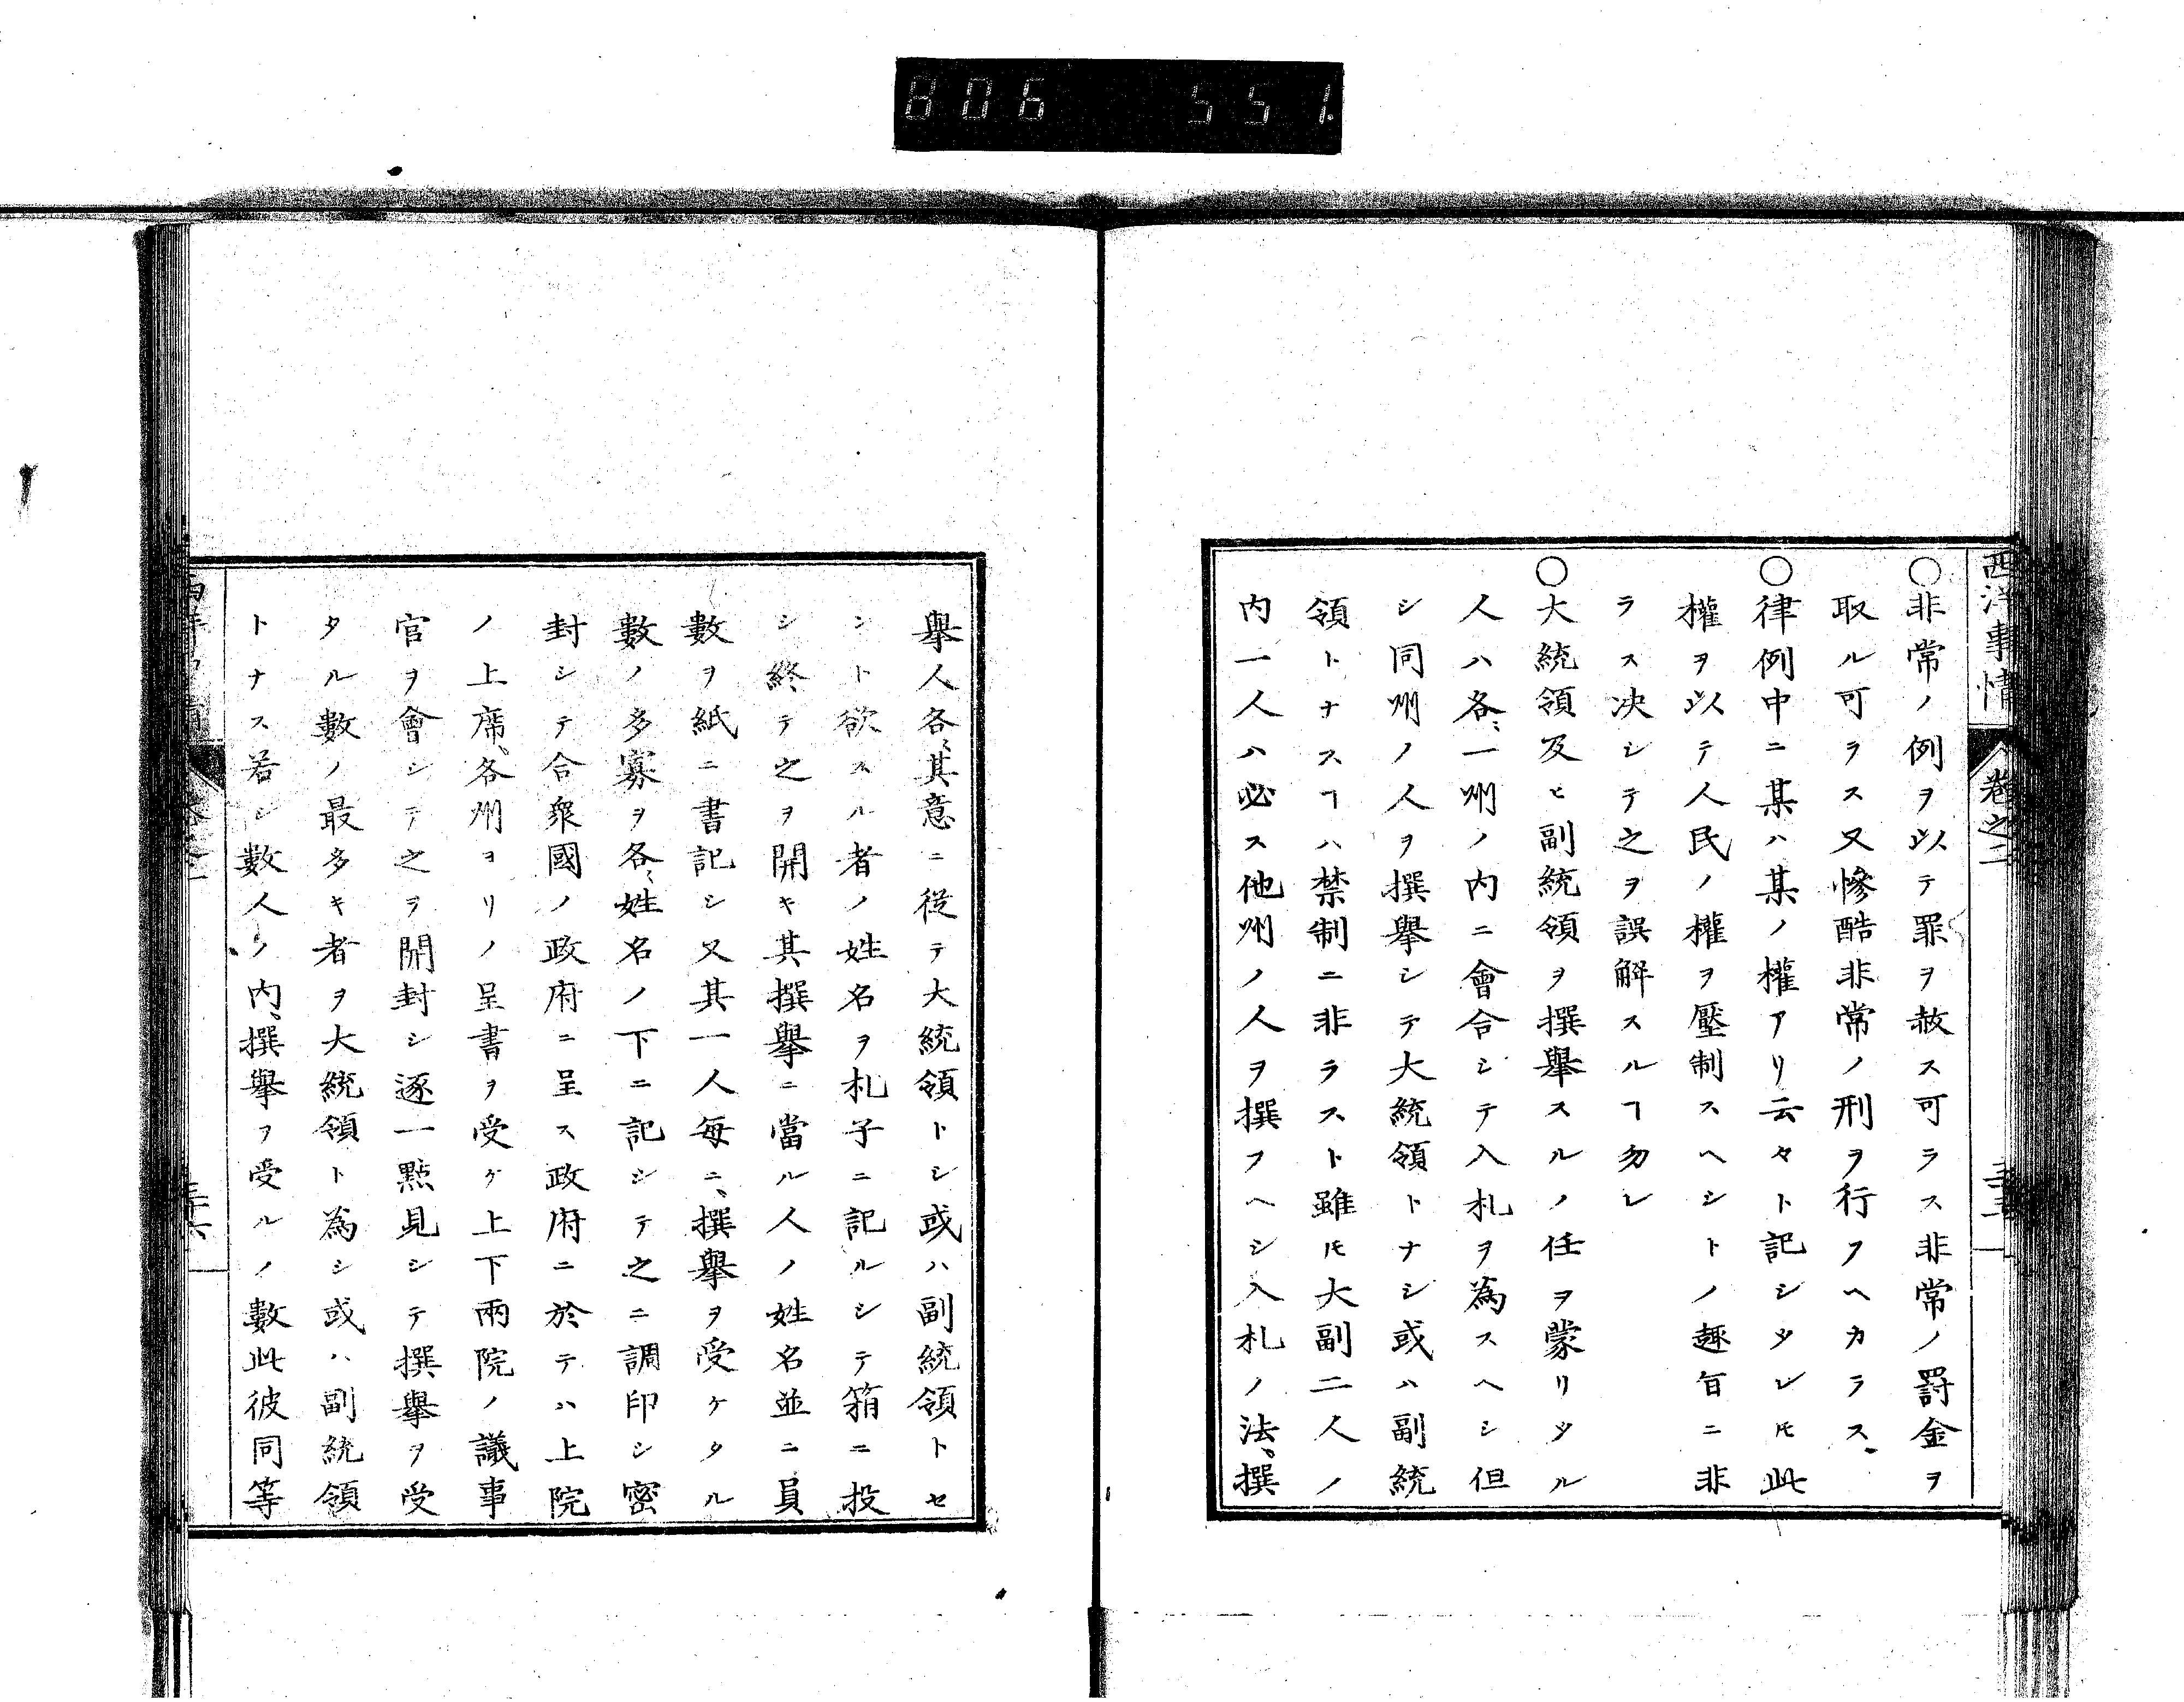 806 551.
西洋事情 巻之二
○非常ノ例ヲ以テ罪ヲ赦ス可ラス非常ノ罸金ヲ
取ル可ラス又慘酷非常ノ刑ヲ行フヘカラス
○律例中ニ某ハ某ノ權アリ云々ト記シタレ𪜈此
權ヲ以テ人民ノ權ヲ壓制スヘシトノ趣旨ニ非
ラス决シテ之ヲ誤解スルヿ勿レ
○大統領及ヒ副統領ヲ撰舉スルノ任ヲ蒙リタル
人ハ各〻一州ノ内ニ會合シテ入札ヲ為スヘシ但
シ同州ノ人ヲ撰舉シテ大統領トナシ或ハ副統
領トナスヿハ禁制ニ非ラスト雖𪜈大副二人ノ
内一人ハ必ス他州ノ人ヲ撰フヘシ入札ノ法、撰
舉人各〻其意ニ從テ大統領トシ或ハ副統領トセ
ント欲スル者ノ姓名ヲ札子ニ記ルシテ箱ニ投
シ終テ之ヲ開キ其撰舉ニ當ル人ノ姓名並ニ員
數ヲ紙ニ書記シ又其一人毎ニ、撰舉ヲ受ケタル
數ノ多寡ヲ各〻姓名ノ下ニ記シテ之ニ調印シ密
封シテ合衆國ノ政府ニ呈ス政府ニ於テハ上院
ノ上席、各州ヨリノ呈書ヲ受ケ上下兩院ノ議事
官ヲ會シテ之ヲ開封シ逐一點見シテ撰舉ヲ受
タル數ノ最多キ者ヲ大統領ト為シ或ハ副統領
トナス若シ數人ノ内、撰舉ヲ受ルノ數此彼同等